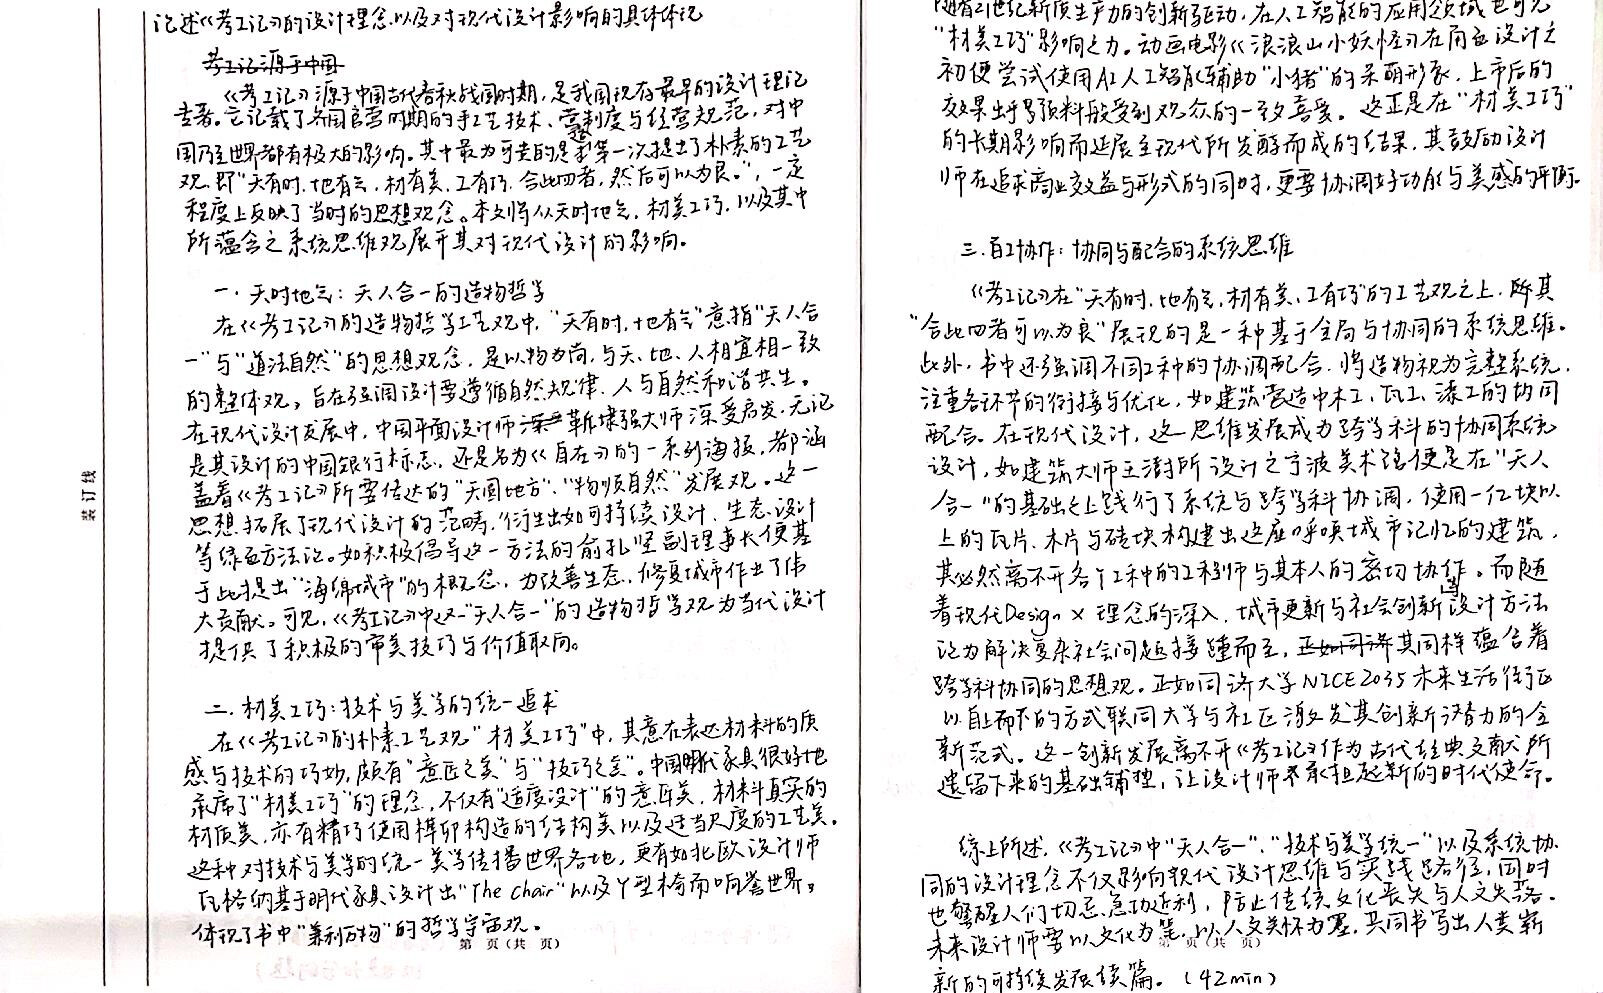 论述《考工记》的设计理念以及对现代设计影响的具体体记
考工记源于中国
《考工记》源于中国古代春秋战国时期，是我国现存最早的设计理论
专著。它记载了各国官营时期的手工艺技术、营制度与经营规范，对中
国乃至世界都有极大的影响。其中最为可贵的是第一次提出了朴素的工艺
观，即"天有时，地有气，材有美，工有巧，合此四者，然后可以为良。"，一定
程度上反映了当时的思想观念。本文将从天时地气，材美工巧，以及其中
所蕴含之系统思维观展开其对现代设计的影响。
一．天时地气：天人合一的造物哲学
在《考工记》的造物哲学工艺观中，"天有时，地有气"意指"天人合
一"与"道法自然"的思想观念，是以物为尚，与天、地、人相宜相一致
的整体观，旨在强调设计要遵循自然规律，人与自然和谐共生。
在现代设计发展中，中国平面设计师 靳埭强大师深受启发，无论
是其设计的中国银行标志，还是名为《自在》的一系列海报，都涵
盖着《考工记》所要传达的"天圆地方"、"物顺自然"发展观。这一
思想拓展了现代设计的范畴，衍生出如可持续设计、生态设计
等绿色方法论。如积极倡导这一方法的俞孔坚副理事长便基
于此提出"海绵城市"的概念，为改善生态，修复城市作出了伟
大贡献。可见，《考工记》中这一"天人合一"的造物哲学观为当代设计
提供了积极的审美技巧与价值取向。
二．材美工巧：技术与美学的统一追求
在《考工记》的朴素工艺观"材美工巧"中，其意在表达材料的质
感与技术的巧妙，颇有"意匠之美"与"技巧之美"。中国明代家具很好地
承席了"材美工巧"的理念，不仅有"适度设计"的意匠美，材料真实的
材质美，亦有精巧使用榫卯构造的结构美以及适当尺度的工艺美。
这种对技术与美学的统一美学传播世界各地，更有如北欧设计师
瓦格纳基于明代家具设计出"The chair"以及Y型椅而响誉世界，
体现了书中"兼利万物"的哲学宇宙观。
第 页（共 页）
随着21世纪新质生产力的创新驱动，在人工智能的应用领域也可见
"材美工巧"影响之力。动画电影《浪浪山小妖怪》在角色设计之
初便尝试使用AI人工智能辅助"小猪"的呆萌形象，上市后的
效果出乎预料般受到观众的一致喜爱。这正是在"材美工巧"
的长期影响而延展至现代所发酵而成的结果，其鼓励设计
师在追求商业效益与形式的同时，更要协调好功能与美感的平衡。
三．百工协作：协同与配合的系统思维
《考工记》在"天有时，地有气，材有美，工有巧"的工艺观之上，所其
"合此四者可以为良"展现的是一种基于全局与协同的系统思维。
此外，书中还强调不同工种的协调配合，将造物视为完整系统，
注重各环节的衔接与优化，如建筑营造中木工、瓦工、漆工的协同
配合。在现代设计，这一思维发展成为跨学科的协同系统
设计，如建筑大师王澍所设计之宁波美术馆便是在"天人
合一"的基础之上践行了系统与跨学科协调，使用一亿块以
上的瓦片、木片与砖块构建出这座呼唤城市记忆的建筑，
其必然离不开各个工种的工程师与其本人的密切协作。而随
着现代Design X 理念的深入，城市更新与社会创新设计方法
论为解决复杂社会问题接踵而至，正如同济其同样蕴含着
跨学科协同的思想观。正如同济大学NICE2035未来生活街区
以自上而下的方式联同大学与社区激发其创新潜力的全
新范式。这一创新发展离不开《考工记》作为古代经典文献所
遗留下来的基础铺垫，让设计师承担起新的时代使命。
综上所述，《考工记》中"天人合一"、"技术与美学统一"以及系统协
同的设计理念不仅影响现代设计思维与实践路径，同时
也警醒人们切忌急功近利，防止传统文化丧失与人文失落。
未来设计师要以文化为笔，以人文关怀为墨，共同书写出人类崭
新的可持续发展续篇。(42min)
第 页（共 页）
装订线